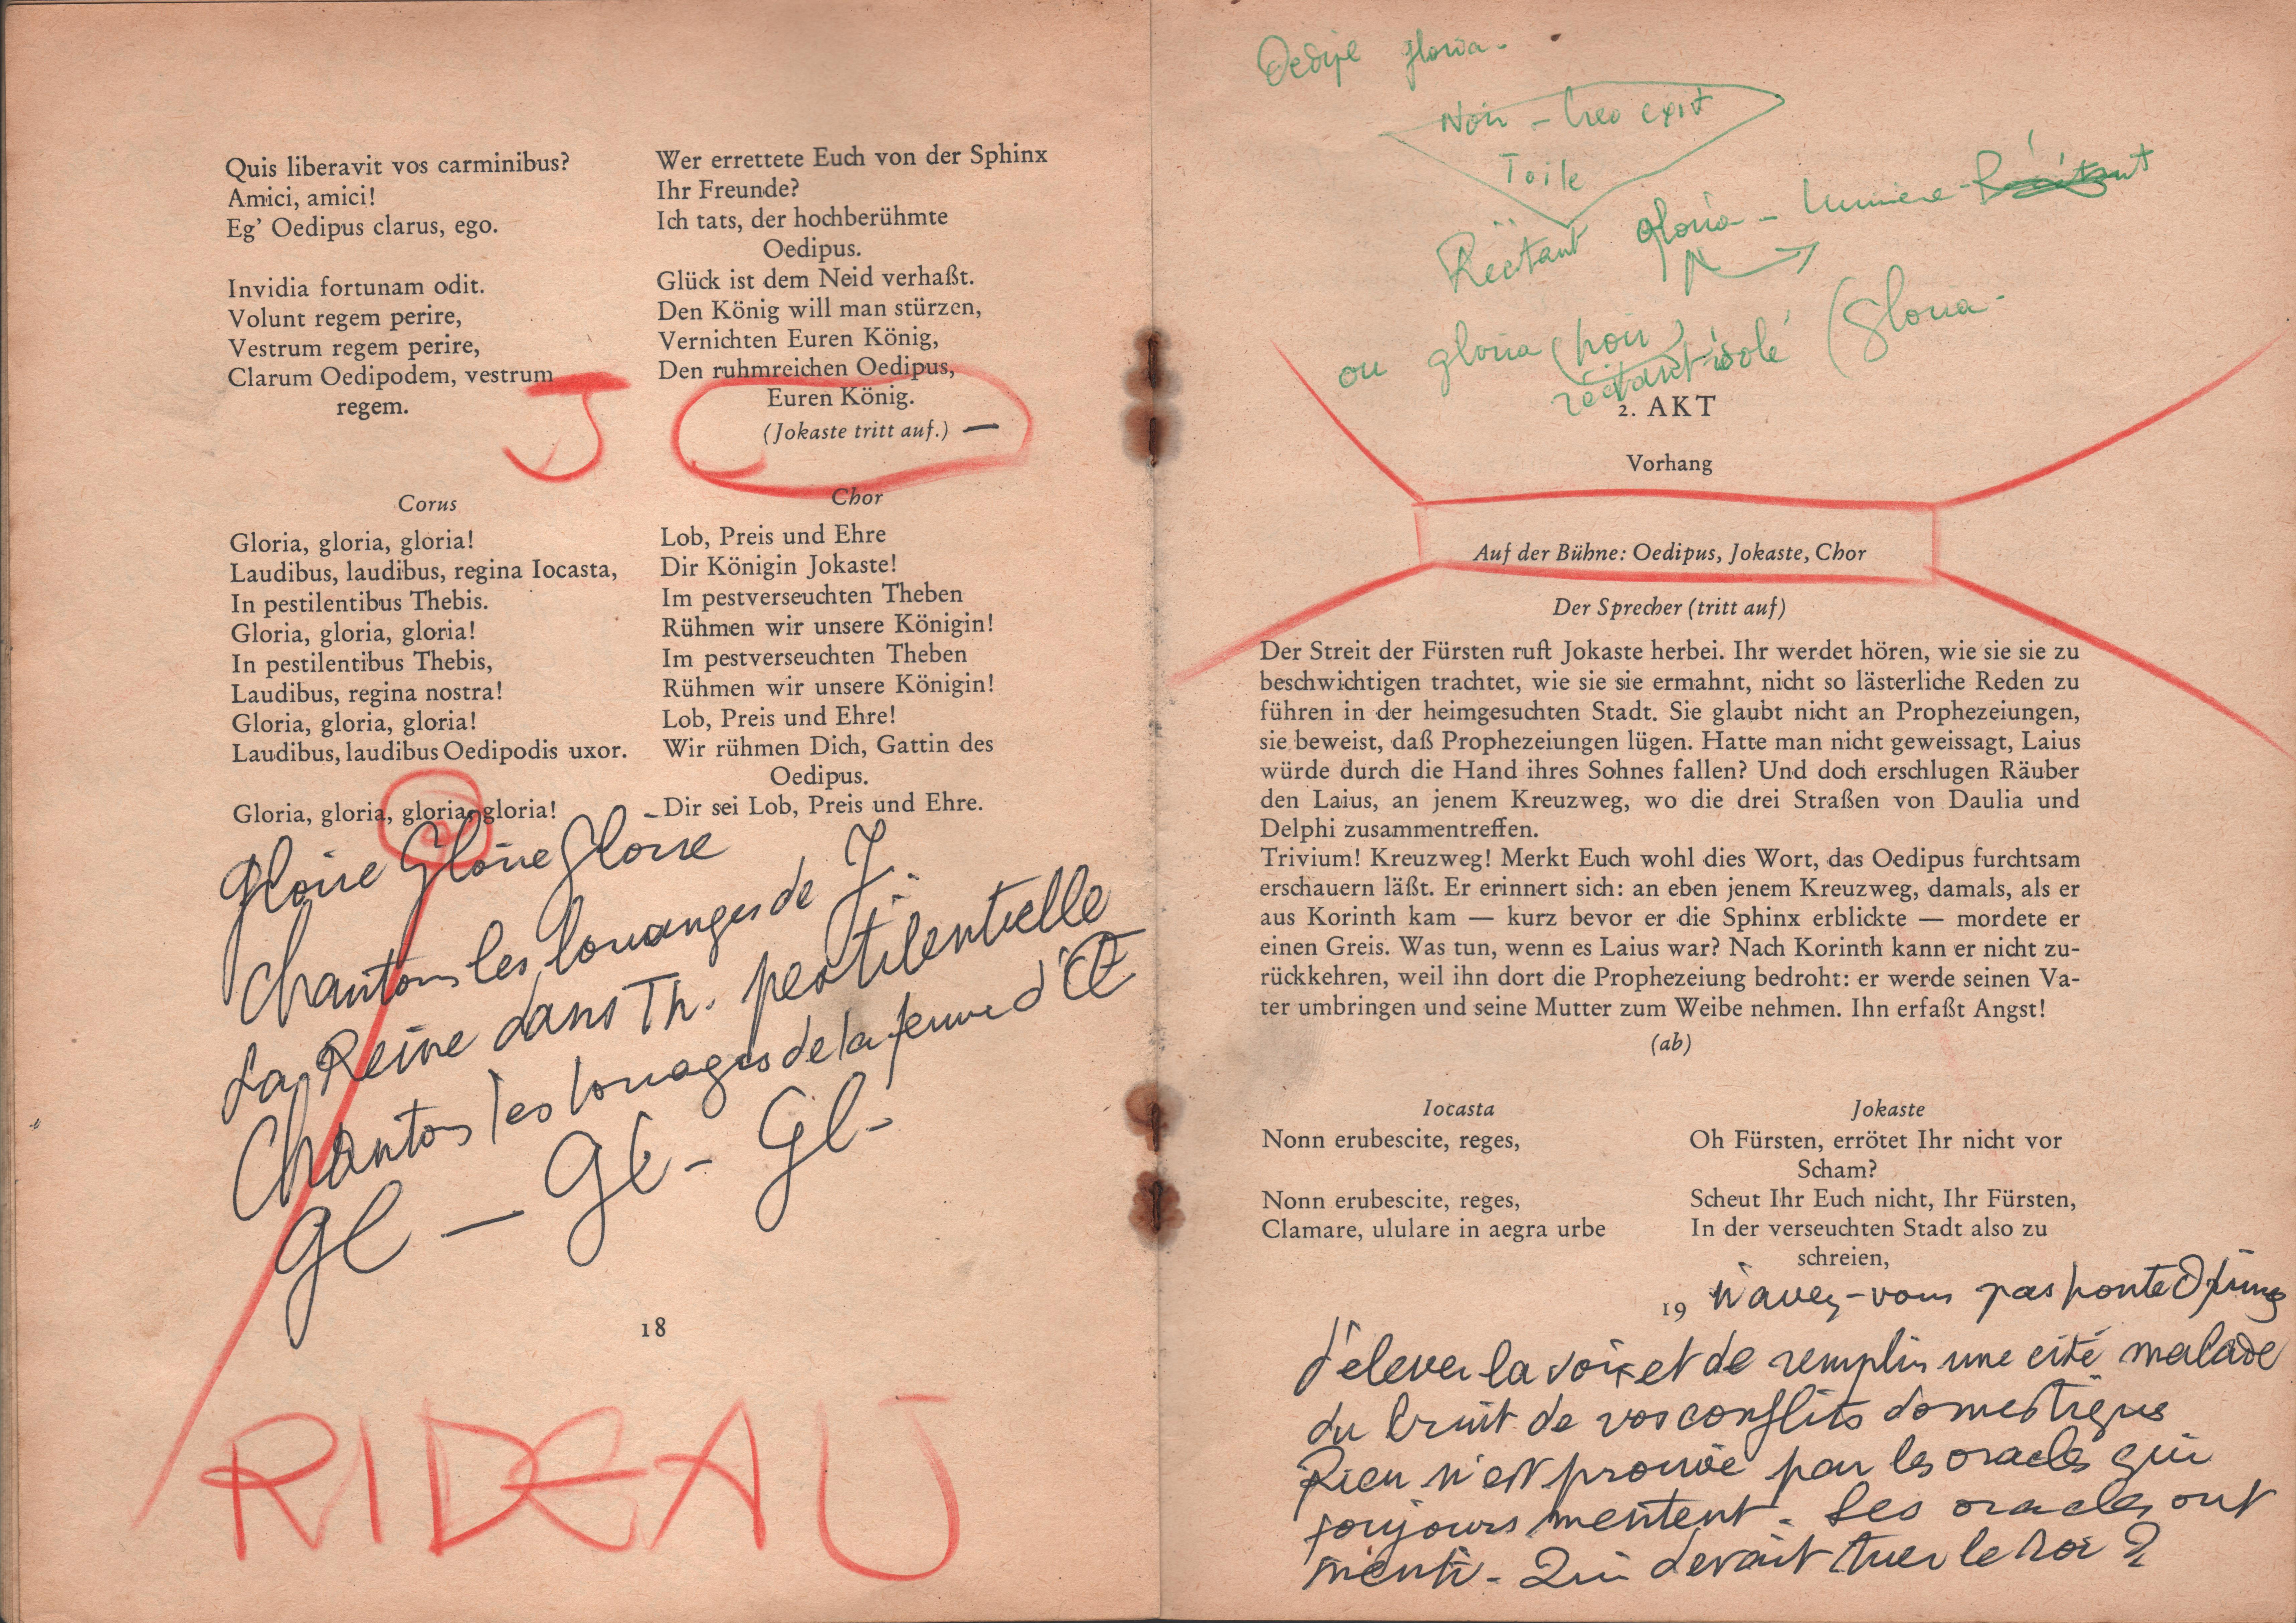 Quis liberavit vos carminibus?
Amici, amici!
Eg' Oedipus clarus, ego.
Invidia fortunam odit.
Volunt regem perire,
Vestrum regem perire,
Clarum Oedipodem, vestrum
regem.
J
Corus
Gloria, gloria, gloria!
Laudibus, laudibus, regina Iocasta,
In pestilentibus Thebis.
Gloria, gloria, gloria!
In pestilentibus Thebis,
Laudibus, regina nostra!
Gloria, gloria, gloria!
Laudibus, laudibus Oedipodis uxor.
Gloria, gloria, gloria, gloria!
Wer errettete Euch von der Sphinx
Ihr Freunde?
Ich tats, der hochberühmte
Oedipus.
Glück ist dem Neid verhaßt.
Den König will man stürzen,
Vernichten Euren König,
Den ruhmreichen Oedipus,
Euren König.
(Jokaste tritt auf.) —
Chor
Lob, Preis und Ehre
Dir Königin Jokaste!
Im pestverseuchten Theben
Rühmen wir unsere Königin!
Im pestverseuchten Theben
Rühmen wir unsere Königin!
Lob, Preis und Ehre!
Wir rühmen Dich, Gattin des
Oedipus.
Dir sei Lob, Preis und Ehre.
Gloire Gloire Gloire
Chantons les louanges de J.
La Reine dans Th. pestilentielle
Chantons les louages de la femme d'Œ
Gl — Gl - Gl -
18
RIDEAU
Oedipe gloria -
Noir - exit
Toile
Récitant gloria - lumière - Récitant
ou gloria (noir) (Gloria -
récitant isolé
2. AKT
Vorhang
Auf der Bühne: Oedipus, Jokaste, Chor
Der Sprecher (tritt auf)
Der Streit der Fürsten ruft Jokaste herbei. Ihr werdet hören, wie sie sie zu
beschwichtigen trachtet, wie sie sie ermahnt, nicht so lästerliche Reden zu
führen in der heimgesuchten Stadt. Sie glaubt nicht an Prophezeiungen,
sie beweist, daß Prophezeiungen lügen. Hatte man nicht geweissagt, Laius
würde durch die Hand ihres Sohnes fallen? Und doch erschlugen Räuber
den Laius, an jenem Kreuzweg, wo die drei Straßen von Daulia und
Delphi zusammentreffen.
Trivium! Kreuzweg! Merkt Euch wohl dies Wort, das Oedipus furchtsam
erschauern läßt. Er erinnert sich: an eben jenem Kreuzweg, damals, als er
aus Korinth kam — kurz bevor er die Sphinx erblickte — mordete er
einen Greis. Was tun, wenn es Laius war? Nach Korinth kann er nicht zu-
rückkehren, weil ihn dort die Prophezeiung bedroht: er werde seinen Va-
ter umbringen und seine Mutter zum Weibe nehmen. Ihn erfaßt Angst!
(ab)
Iocasta
Nonn erubescite, reges,
Nonn erubescite, reges,
Clamare, ululare in aegra urbe
Jokaste
Oh Fürsten, errötet Ihr nicht vor
Scham?
Scheut Ihr Euch nicht, Ihr Fürsten,
In der verseuchten Stadt also zu
schreien,
19
N'avez-vous pas honte O princes
d'élever la voix et de remplir une cité malade
du bruit de vos conflits domestiques
Rien n'est prouvé par les oracles qui
toujours mentent. Les oracles ont
menti - Qui devait tuer le roi ?